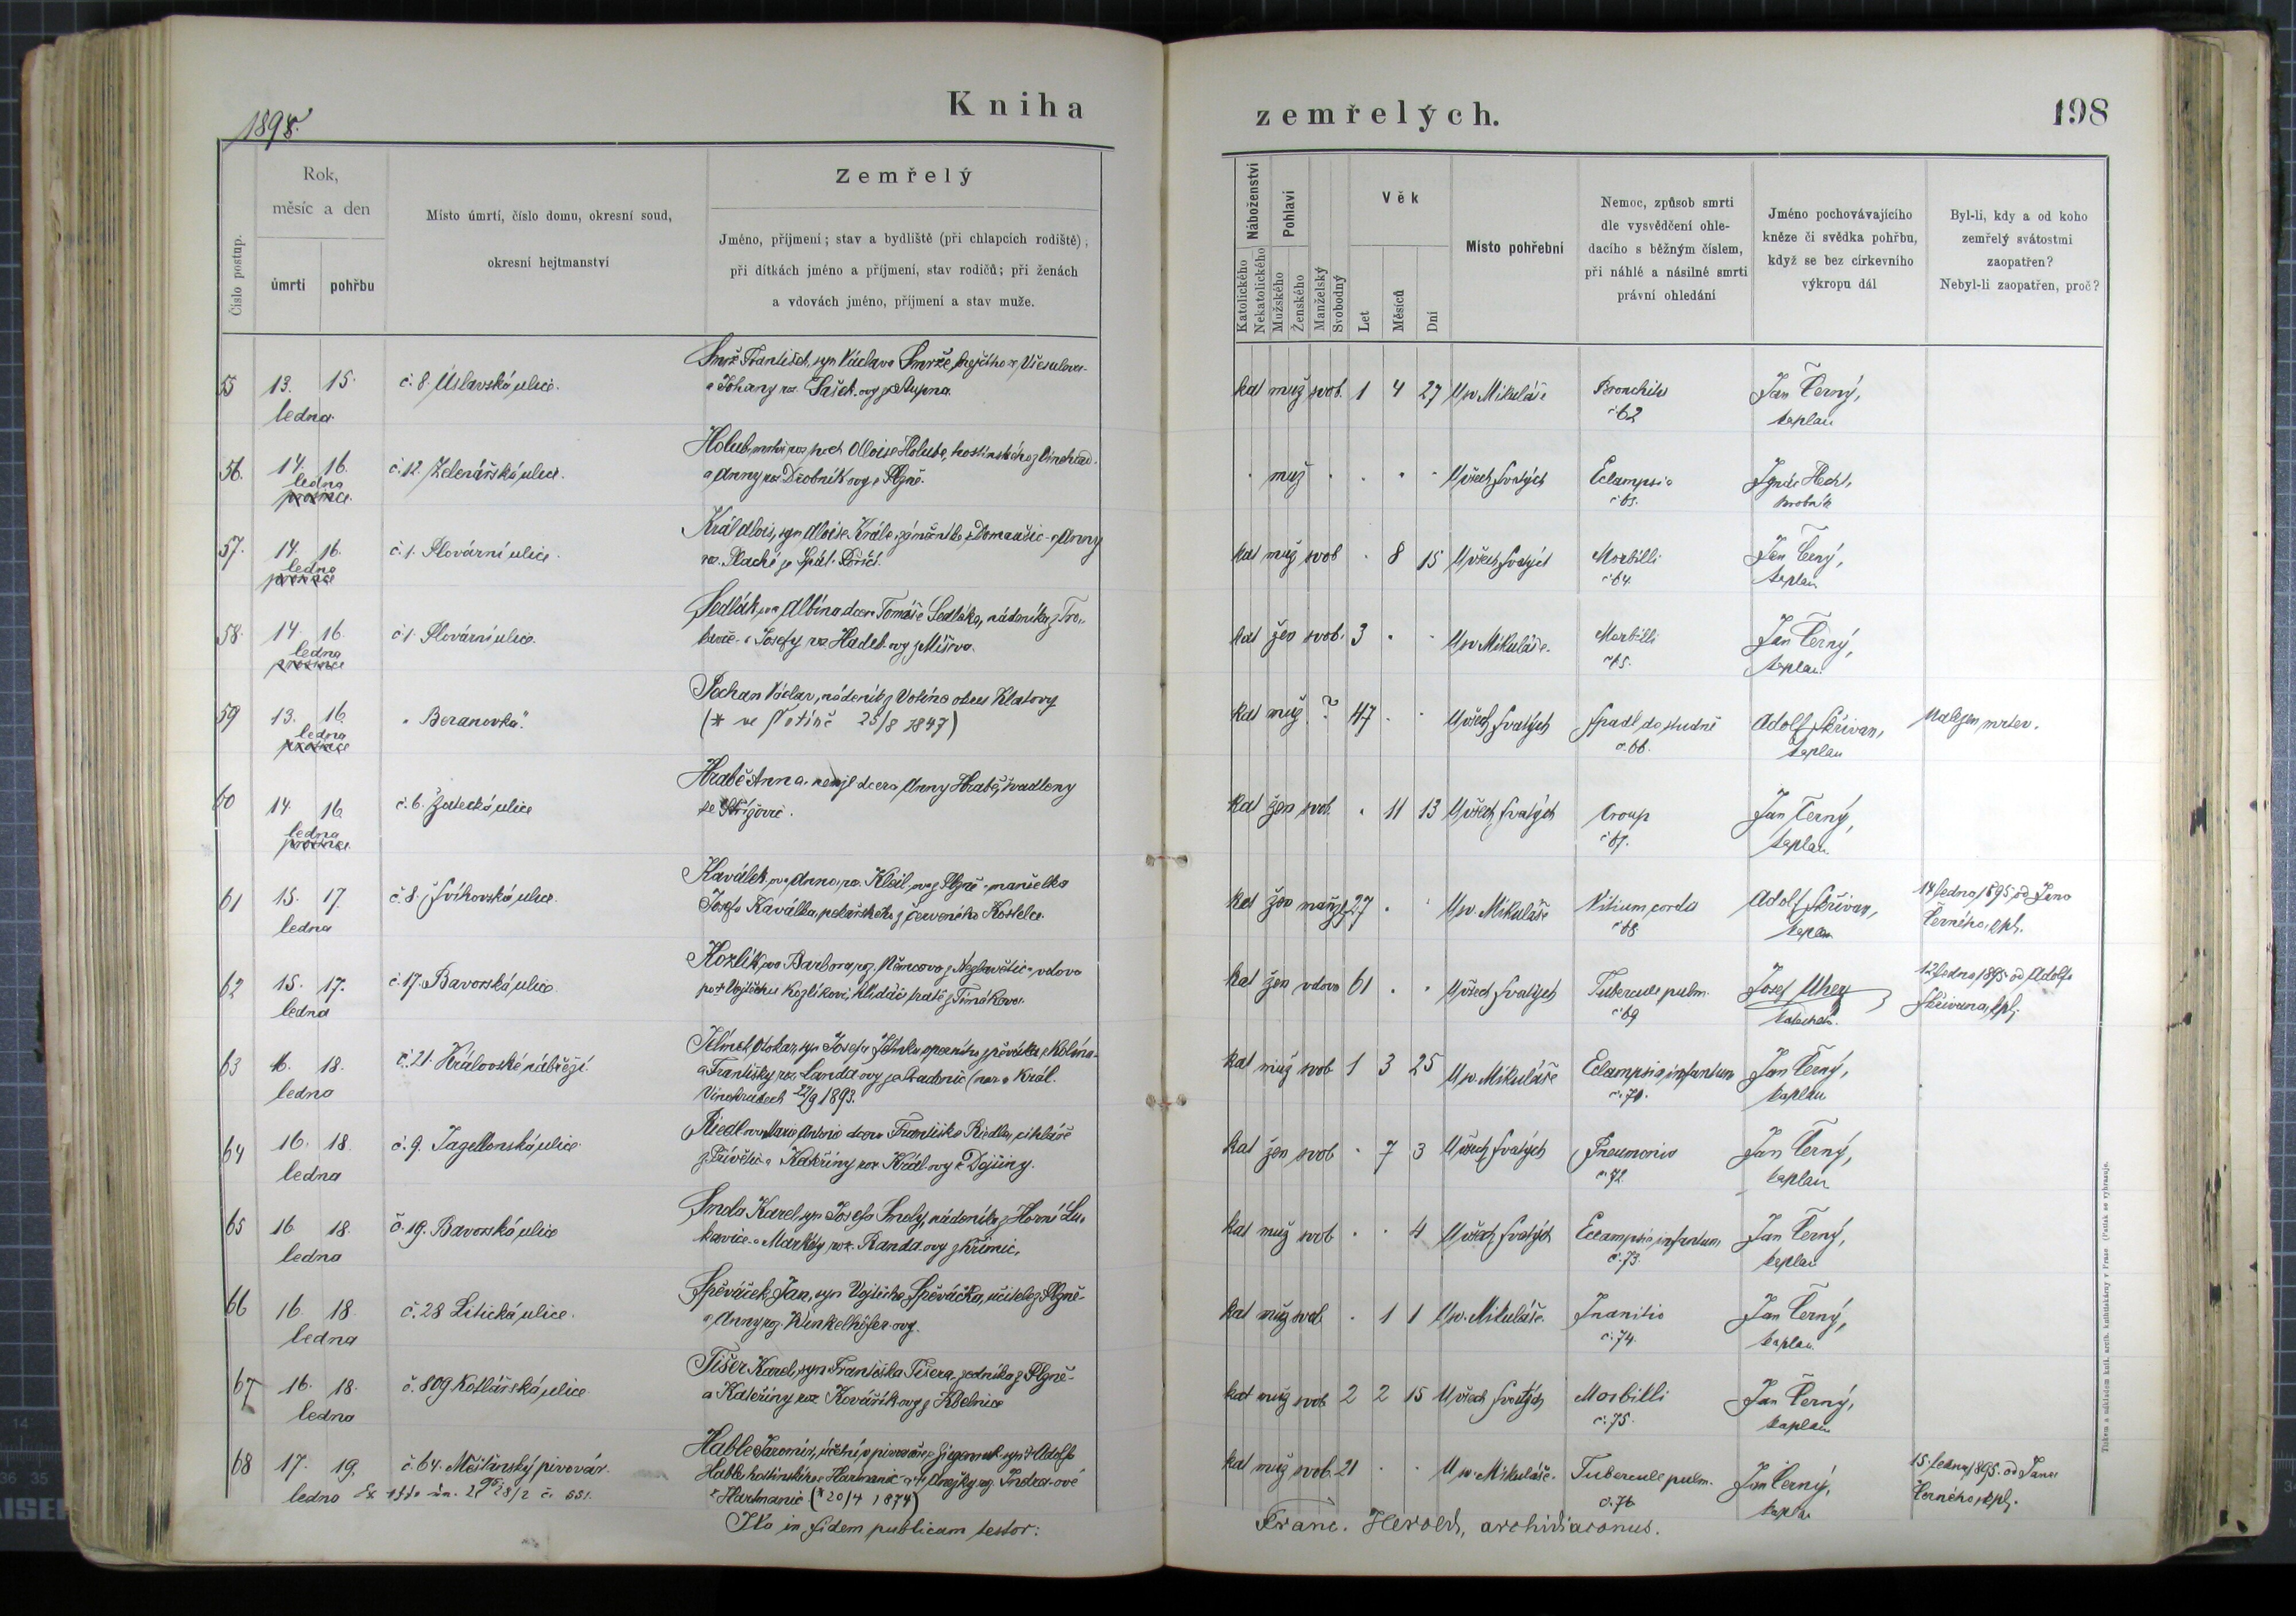 Kniha
zemřelých.
198
1895.
Číslo postup.
Rok,
měsíc a den
úmrtí
pohřbu
Místo úmrtí, číslo domu, okresní soud,
okresní hejtmanství
Zemřelý
Jméno, příjmení; stav a bydliště (při chlapcích rodiště);
při dítkách jméno a příjmení, stav rodičů; při ženách
a vdovách jméno, příjmení a stav muže.
Náboženství
Katolického
Nekatolického
Pohlaví
Mužského
Ženského
Manželský
Svobodný
Věk
Let
Měsíců
Dní
Místo pohřební
Nemoc, způsob smrti
dle vysvědčení ohle-
dacího s běžným číslem,
při náhlé a násilné smrti
právní ohledání
Jméno pochovávajícího
kněze či svědka pohřbu,
když se bez církevního
výkropu dál
Byl-li, kdy a od koho
zemřelý svátostmi
zaopatřen?
Nebyl-li zaopatřen, proč?
55 13. 15. č. 8. Úslavská ulice. Smrž František, syn Václava Smrže,
ledna a Johany roz. Šašek-ovy
kat muž svob. 1 4 27 U sv. Mikuláše Bronchitis Jan Černý,
č 62 kaplan
56. 14. 16. č. 12. Zelenářská ulice. Holub, Aloise Holuba, hostinského
ledna a Anny roz. Drobník-ovy z Plzně.
prosince
muž U všech svatých Eclampsie Ignác Hecht,
č 63. hrobník
57. 14. 16. č. 1. Plovární ulice. Král Alois, syn Aloise Krále, zámečníka z Domažlic a Anny
ledna roz. Plaché ze Spál. Poříčí.
prosince
kat muž svob 8 15 U všech svatých Morbilli Jan Černý,
č 64. kaplan
58. 14. 16. č. 1. Plovární ulice. Sedlák-ova Albína dcera Tomáše Sedláka, nádeníka z
ledna a Josefy roz.
prosince
kat žen svob. 3 U sv. Mikuláše. Morbilli Jan Černý,
č 65. kaplan
59 13. 16. „Beranovka". Pochan Václav, nádeník z Votína okres Klatovy
ledna (* ve Votíně 25/8 1847)
prosince
kat muž ? 47 U všech svatých spadl do studně Adolf Skřivan, Nalezen mrtev.
č. 66. kaplan
60 14. 16. č. 6. Žatecká ulice Hrabě Anna, dcera Anny Hrabě, švadleny
ledna ze Střížovic.
prosince
kat žen svob. 11 13 U všech svatých Croup Jan Černý,
č 67. kaplan
61 15. 17. č. 8. Švihovská ulice. Kaválek-ova Anna, roz. z Plzně, manželka
ledna Josefa Kaválka, pekařského z červeného Kostelce.
kat žen manžel 27 U sv. Mikuláše Vitium cordis Adolf Skřivan, 14 ledna 1895 od Jana
č 68 kaplan Černého, kpl.
62 15. 17. č. 17. Bavorská ulice Kozlík-ova Barbora, roz. Němcova z Nezbavětic, vdova
ledna po † Vojtěchu Kozlíkovi, hlídači trati z Tymákova.
kat žen vdova 61 U všech svatých Tubercule pulm. Josef Uher 12 ledna 1895 od Adolfa
č 69 katecheta. Skřivana, kpl.
63 16. 18. č. 21. Královské nábřeží. Jelínek Otokar, syn Josefa Jelínka, operního zpěváka z Kolína
ledna a Františky roz. Landa-ovy z Radonic (nar. v Král.
Vinohradech 22/9 1893.
kat muž svob 1 3 25 U sv. Mikuláše Eclampsie infantum Jan Černý,
č. 71. kaplan
64 16. 18. č. 9. Jagellonská ulice Riedl-ova Marie Antonie dcera Františka Riedla, cihláře
ledna z Přívětic a Kateřiny roz. Král-ovy z Dejšiny.
kat žen svob 7 3 U všech svatých Pneumonie Jan Černý,
č. 72. kaplan
65 16 18. č. 19. Bavorská ulice Smola Karel, syn Josefa Smoly, nádeníka z Horní Lu-
ledna kavice a Markéty roz. Randa-ovy z Křimic.
kat muž svob 4 U všech svatých Eclampsie infantum Jan Černý,
č. 73. kaplan
66 16. 18. č. 28 Litická ulice. Spěváček Jan, syn Vojtěcha Spěváčka, učitele z Plzně
ledna a Anny roz. Winkelhöfer-ovy.
kat muž svob. 1 1 U sv. Mikuláše. Inanitio Jan Černý,
č. 74. kaplan
67 16. 18. č. 809 Kotlářská ulice Tišer Karel, syn Františka Tišera, zedníka z Plzně
ledna a Kateřiny roz. Kovářík-ovy z Kbelnice
kat muž svob 2 2 15 U všech svatých Morbilli Jan Černý,
č. 75. kaplan
68 17. 19. č. 64. Měšťanský pivovár. Hable Jaromír, účetní v pivováře, syn † Adolfa
ledna Hable, hostinského z Hartmanic a † Anežky roz. Indra-ové
z Hartmanic (* 20/4 1874)
kat muž svob. 21 U sv. Mikuláše. Tubercule pulm. Jan Černý, 15. ledna 1895. od Jana
č. 76 kaplan Černého, kpl.
Ita in fidem publicam testor:
Franc. Herold, archidiaconus.